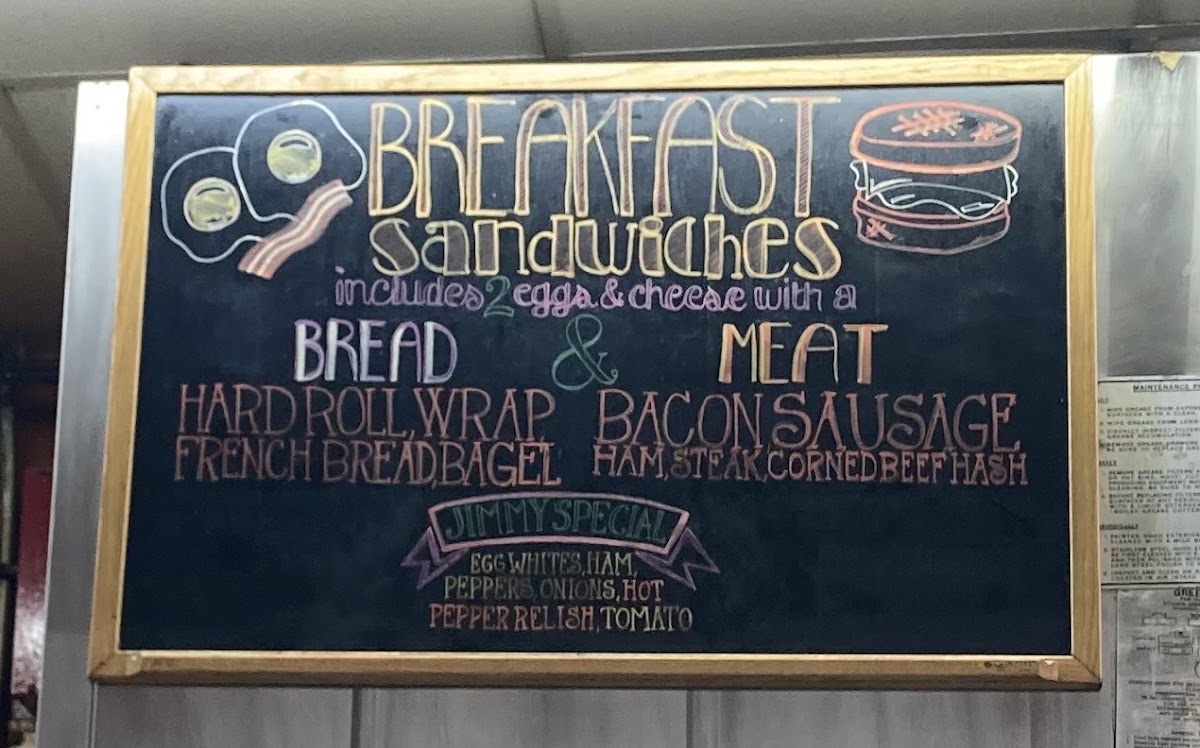 BREAKFAST
sandwiches
includes 2 eggs & cheese with a
BREAD & MEAT
HARD ROLL, WRAP
FRENCH BREAD, BAGEL
BACON SAUSAGE
HAM, STEAK, CORNED BEEF HASH
JIMMY SPECIAL
EGG WHITES, HAM,
PEPPERS, ONIONS, HOT
PEPPER RELISH, TOMATO
MAINTENANCE